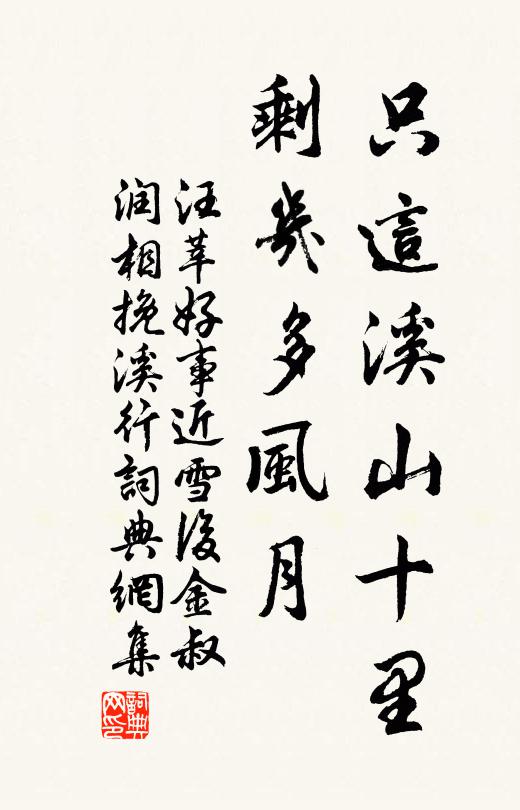 只這溪山十里
剩幾多風月
汪莘好事近雪後金叔
润相挽溪行詞典網集
詞典
网印